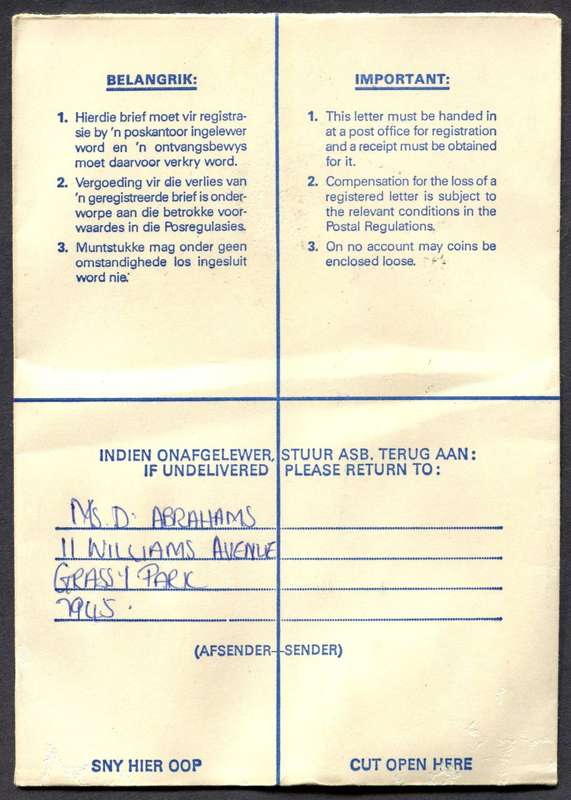 BELANGRIK:
1. Hierdie brief moet vir registra-
sie by 'n poskantoor ingelewer
word en 'n ontvangsbewys
moet daarvoor verkry word.
2. Vergoeding vir die verlies van
'n geregistreerde brief is onder-
worpe aan die betrokke voor-
waardes in die Posregulasies.
3. Muntstukke mag onder geen
omstandighede los ingesluit
word nie.
IMPORTANT:
1. This letter must be handed in
at a post office for registration
and a receipt must be obtained
for it.
2. Compensation for the loss of a
registered letter is subject to
the relevant conditions in the
Postal Regulations.
3. On no account may coins be
enclosed loose.
INDIEN ONAFGELEWER, STUUR ASB. TERUG AAN:
IF UNDELIVERED PLEASE RETURN TO:
MS. D. ABRAHAMS
11 WILLIAMS AVENUE
GRASSY PARK
7945.
(AFSENDER–SENDER)
SNY HIER OOP
CUT OPEN HERE